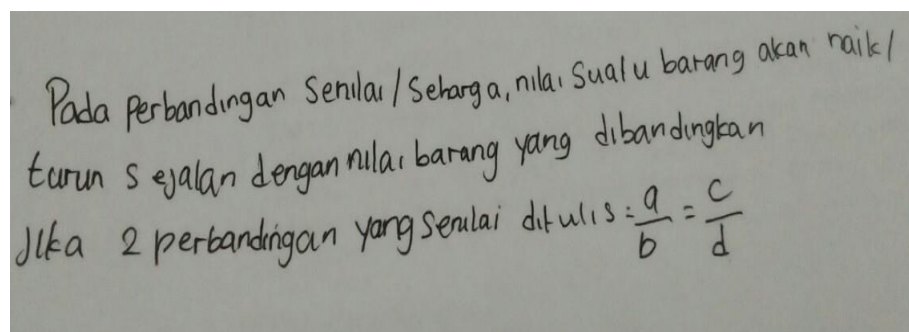 Pada Perbandingan Senilai / Seharga, nilai Suatu barang akan naik /
turun sejalan dengan nilai barang yang dibandingkan
Jika 2 perbandingan yang senilai ditulis : a/b = c/d